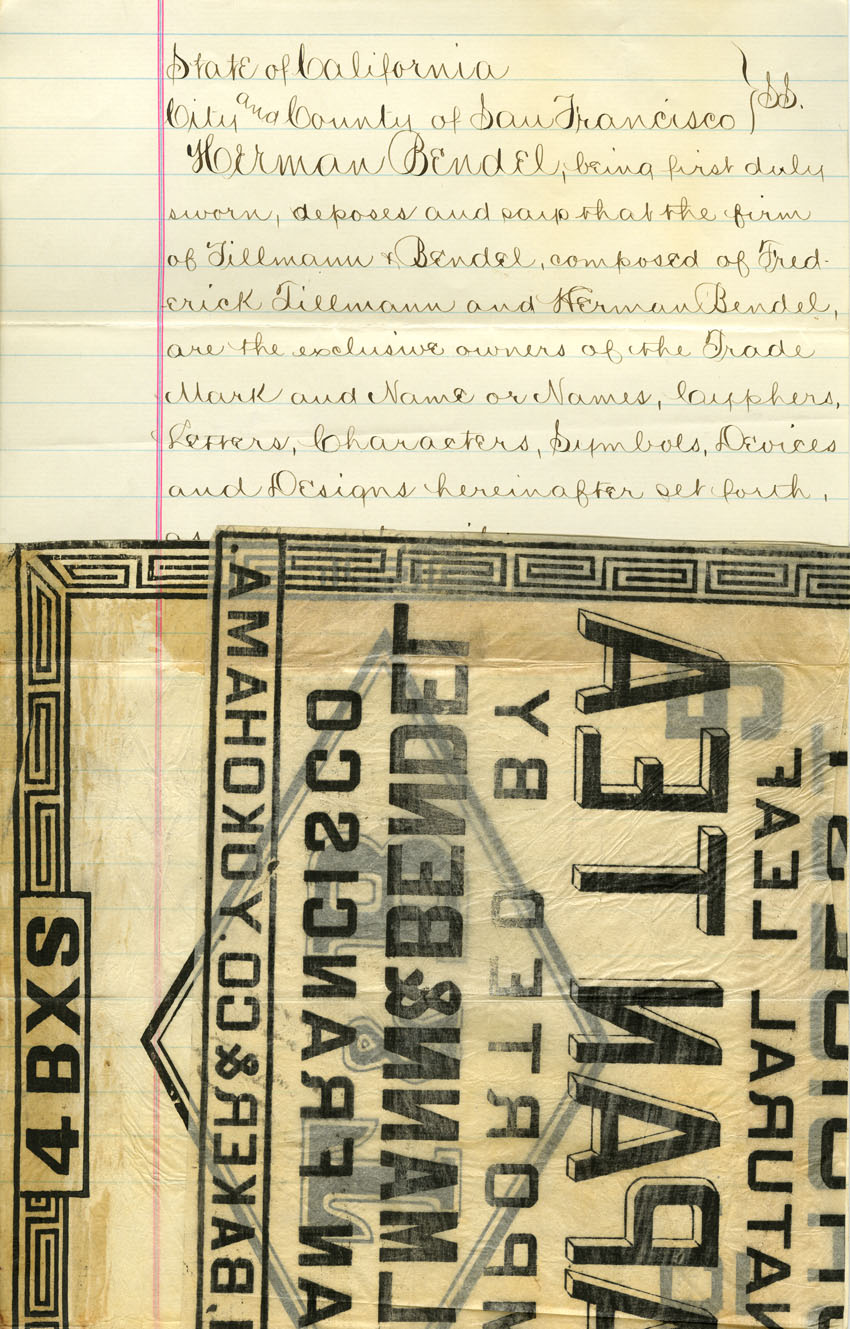 State of California
City and County of San Francisco } SS.
Herman Bendel, being first duly
sworn, deposes and says that the firm
of Tillmann & Bendel, composed of Fred-
erick Tillmann and Herman Bendel,
are the exclusive owners of the Trade
Mark and Name or Names, Cyphers,
Letters, Characters, Symbols, Devices
and Designs hereinafter set forth,
4 BXS
BAKER & CO. YOKOHAMA.
AN FRANCISCO
LMANN & BENDEL
PORTED BY
PAN TEA
NATURAL LEAF